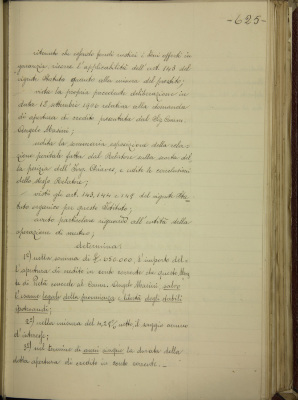 -625-
ritenuto che essendo fondi rustici i beni offerti in
garanzia, ricorre l'applicabilità dell'art. 143 del
vigente Statuto quanto alla misura del prestito;
vista la propria precedente deliberazione in
data 15 settembre relativa alla domanda
di apertura di credito presentata dal
Angelo Masini;
udita la sommaria esposizione della rela-
zione peritale fatta dal Relatore sulla scorta del
la perizia dell'Ing. Chiaves, e udite le conclusioni
dello stesso Relatore;
visti gli art. 143, 144 e 149 del vigente Sta-
tuto organico per questo Istituto;
avuto particolare riguardo all'entità della
operazione di mutuo;
determina:
1°) nella somma di £ 050.000, l'importo del-
l'apertura di credito in conto corrente che questo Mon-
te di Pietà accorda al Comm. Angelo Masini, salvo
l'esame legale della provenienza e libertà degli stabili
ipotecandi;
2°) nella misura del 4,25% netto il saggio annuo
d'interesse;
3°) nel termine di anni cinque la durata della
detta apertura di credito in conto corrente.